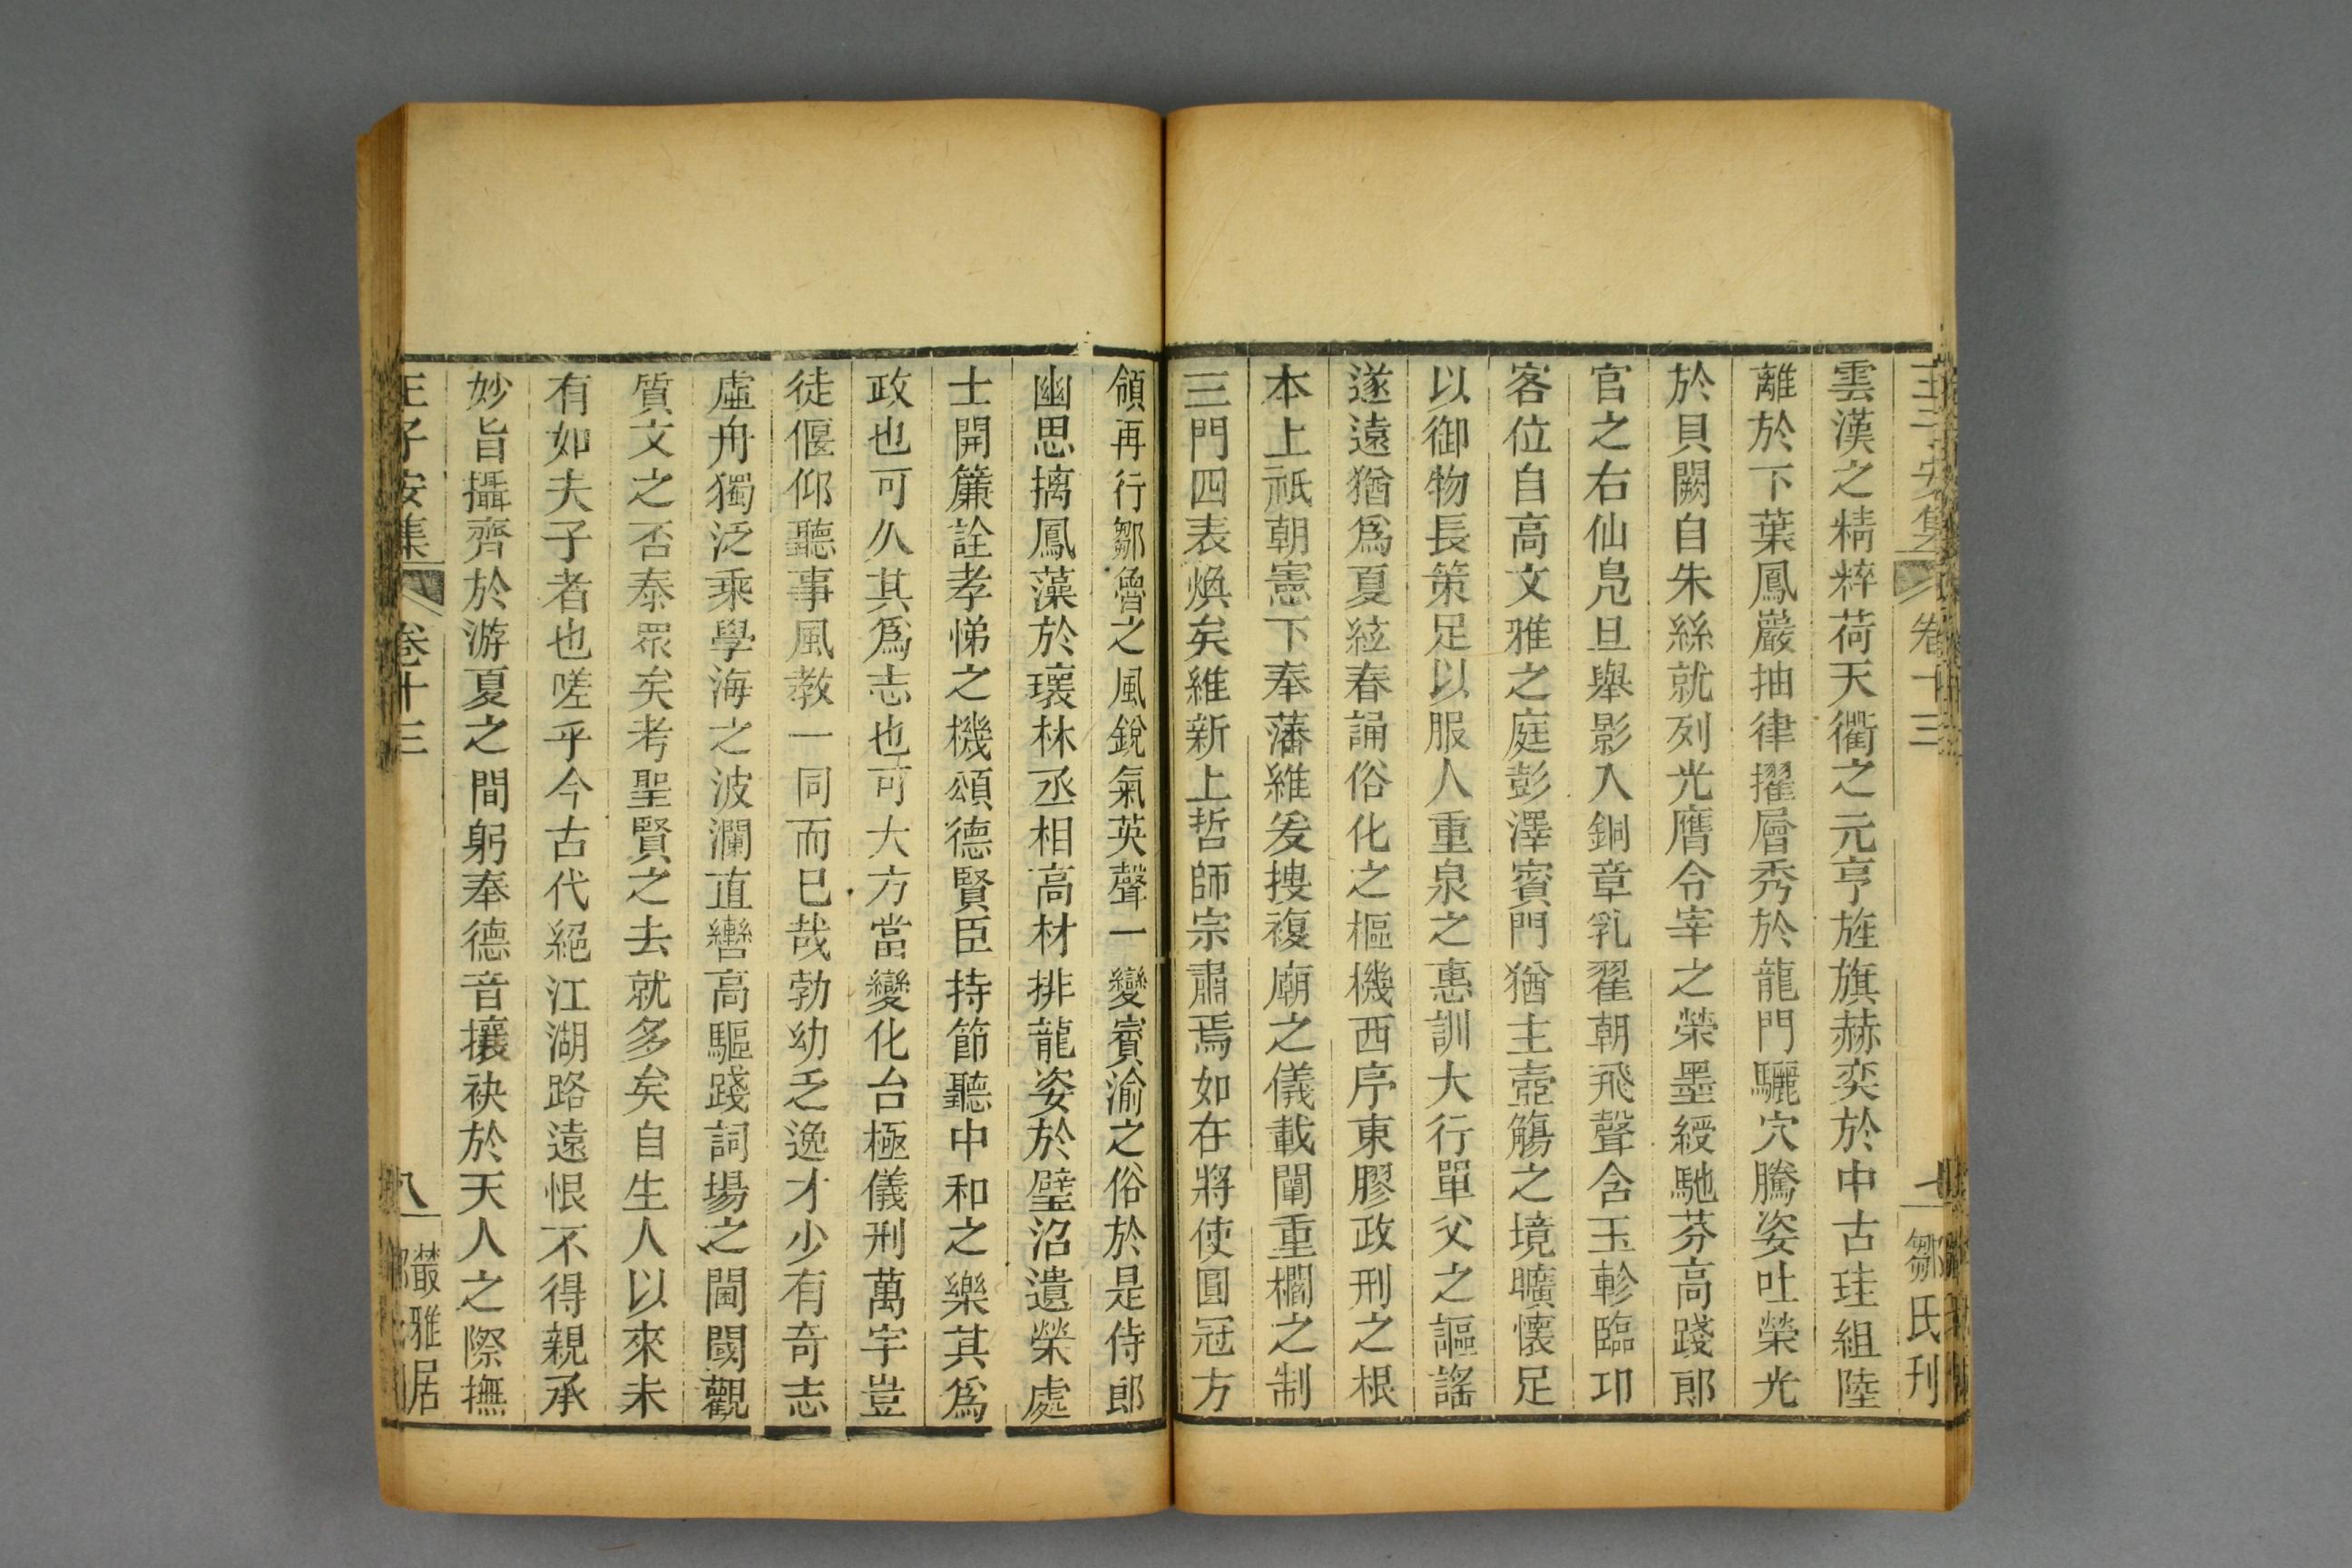 王子安集 卷十三 七 鄒氏刊
雲漢之精粹荷天衢之元亨旌旗赫奕於中古珪組陸
離於下葉鳳巖抽律擢層秀於龍門驪穴騰姿吐榮光
於貝闕自朱絲就列光膺令宰之榮墨綬馳芬高踐郎
官之右仙鳧旦舉影入銅章乳翟朝飛聲含玉軫臨邛
客位自高文雅之庭彭澤賓門猶主壺觴之境曠懷足
以御物長策足以服人重泉之惠訓大行單父之謳謠
遂遠猶爲夏絃春誦俗化之樞機西序東膠政刑之根
本上祇朝憲下奉藩維爰搜複廟之儀載闡重櫩之制
三門四表煥矣維新上哲師宗肅焉如在將使圓冠方
領再行鄒魯之風銳氣英聲一變賓渝之俗於是侍郎
幽思摛鳳藻於瓌林丞相高材排龍姿於璧沼遺榮處
士開簾詮孝悌之機頌德賢臣持節聽中和之樂其爲
政也可久其爲志也可大方當變化台極儀刑萬宇豈
徒偃仰聽事風教一同而已哉勃幼乏逸才少有奇志
虛舟獨泛乘學海之波瀾直轡高驅踐詞場之閫閾觀
質文之否泰眾矣考聖賢之去就多矣自生人以來未
有如夫子者也嗟乎今古代絕江湖路遠恨不得親承
妙旨攝齊於游夏之間躬奉德音攘袂於天人之際撫
王子安集 卷十三 八 叢雅居